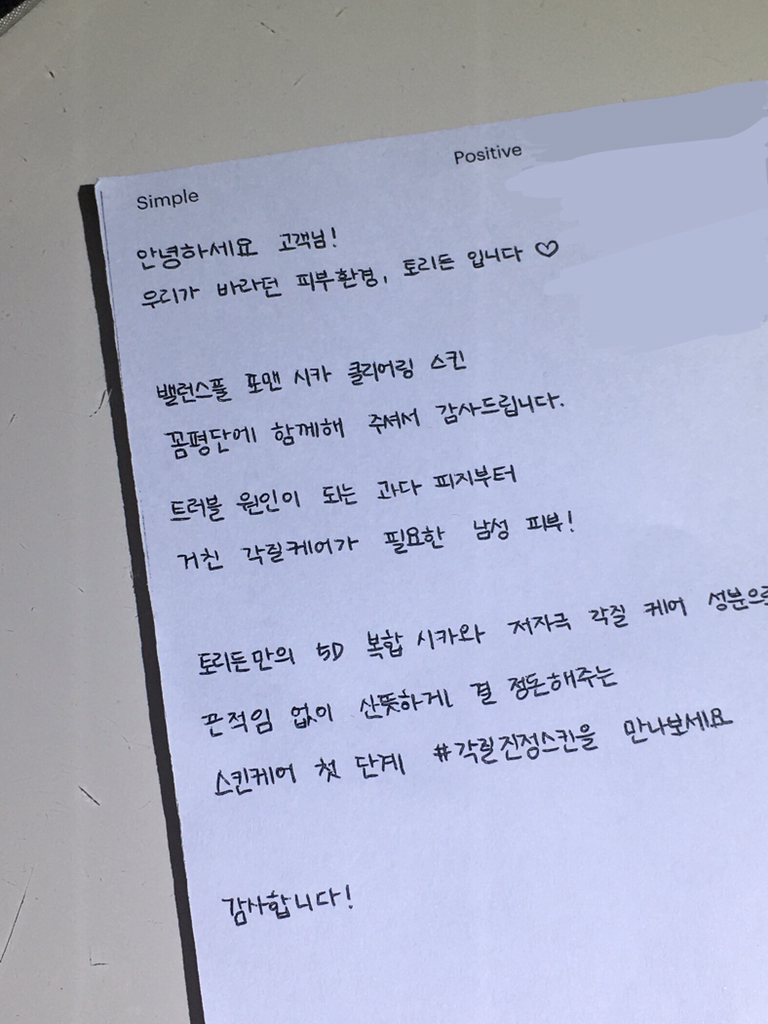 Simple Positive
안녕하세요 고객님!
우리가 바라던 피부환경, 토리든 입니다 ♡
밸런스풀 포맨 시카 클리어링 스킨
꼼평단에 함께해 주셔서 감사드립니다.
트러블 원인이 되는 과다 피지부터
거친 각질케어가 필요한 남성 피부!
토리든만의 5D 복합 시카와 저자극 각질 케어 성분으로
끈적임 없이 산뜻하게 결 정돈해주는
스킨케어 첫 단계 #각질진정스킨을 만나보세요
감사합니다!